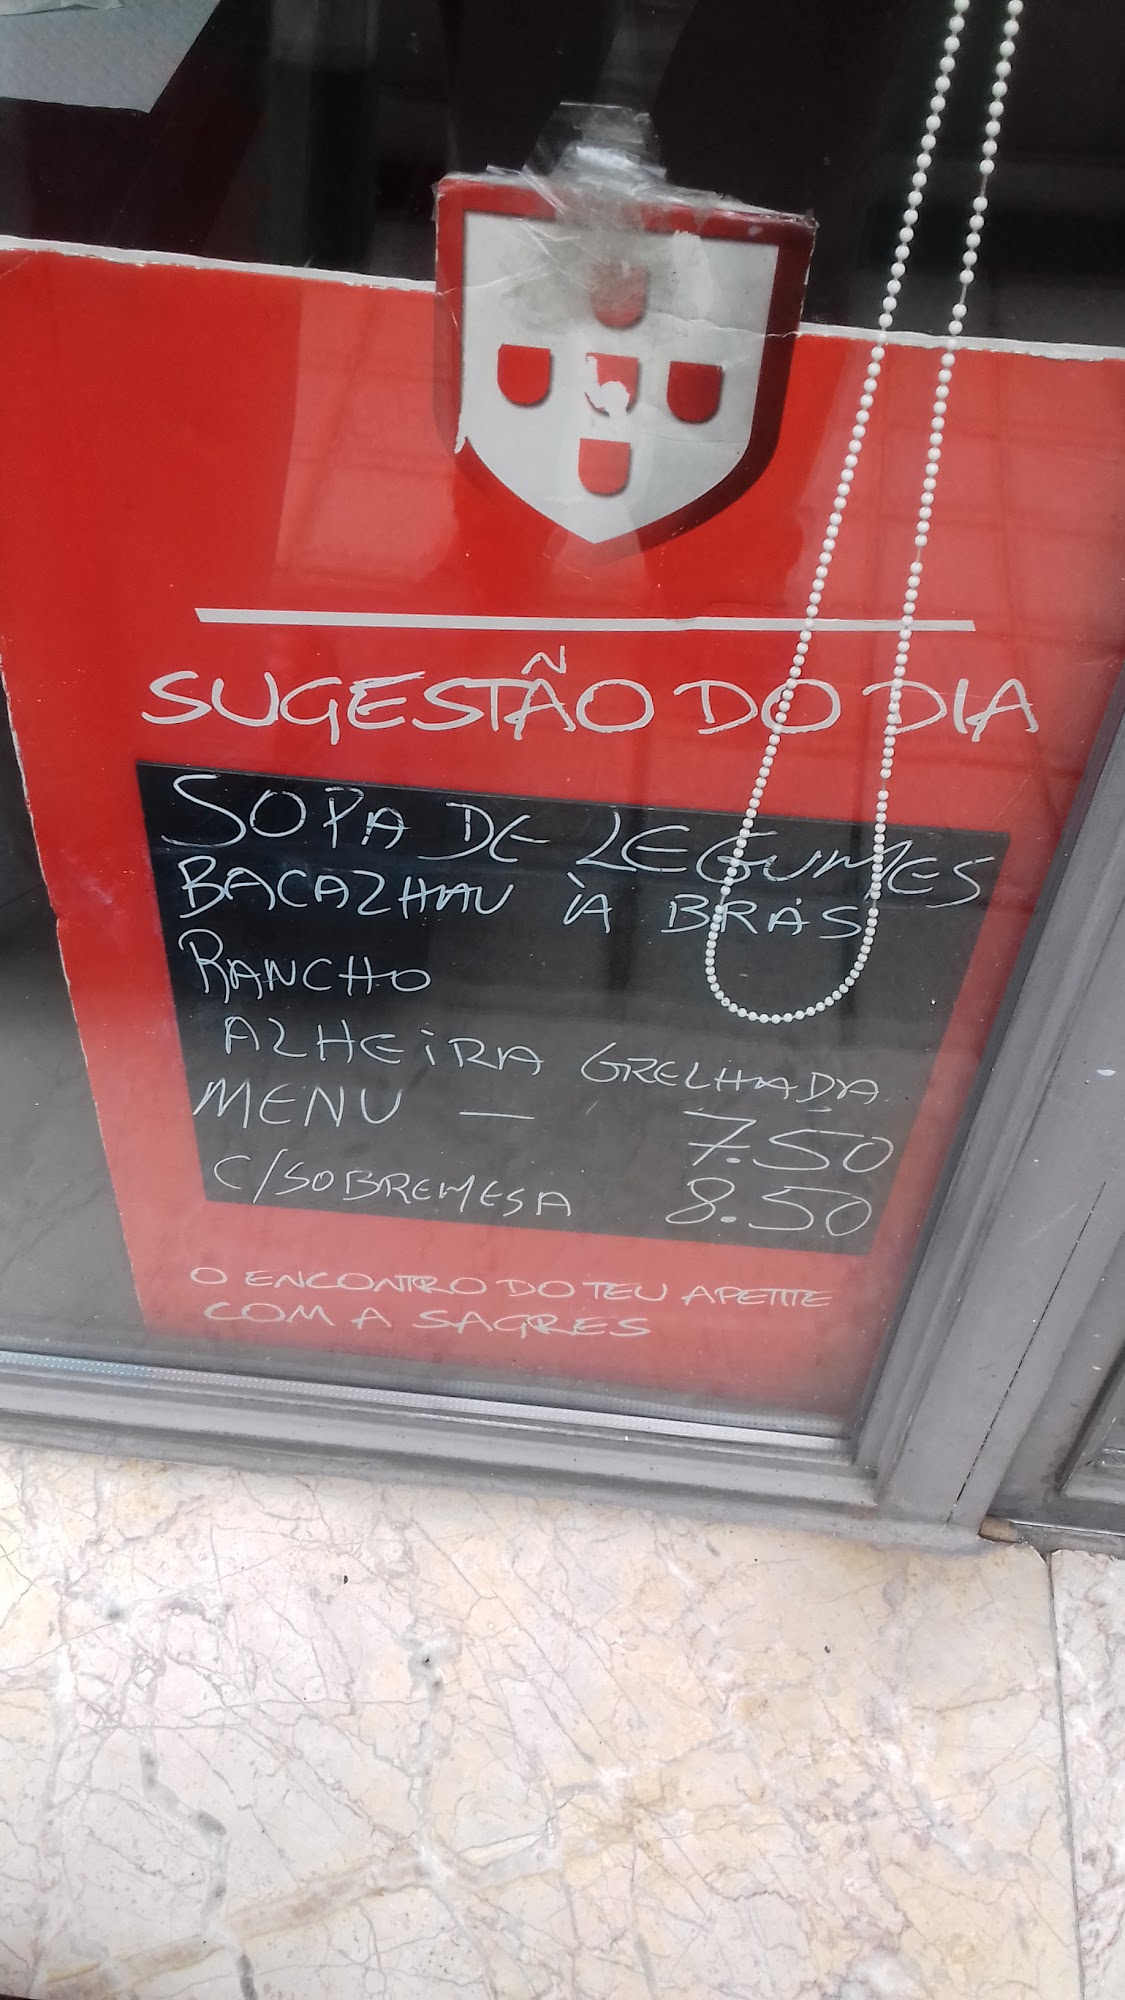 SUGESTÃO DO DIA
SOPA DE LEGUMES
BACALHAU À BRÁS
RANCHO
ALHEIRA GRELHADA
MENU — 7.50
C/SOBREMESA 8.50
O ENCONTRO DO TEU APETITE
COM A SAGRES